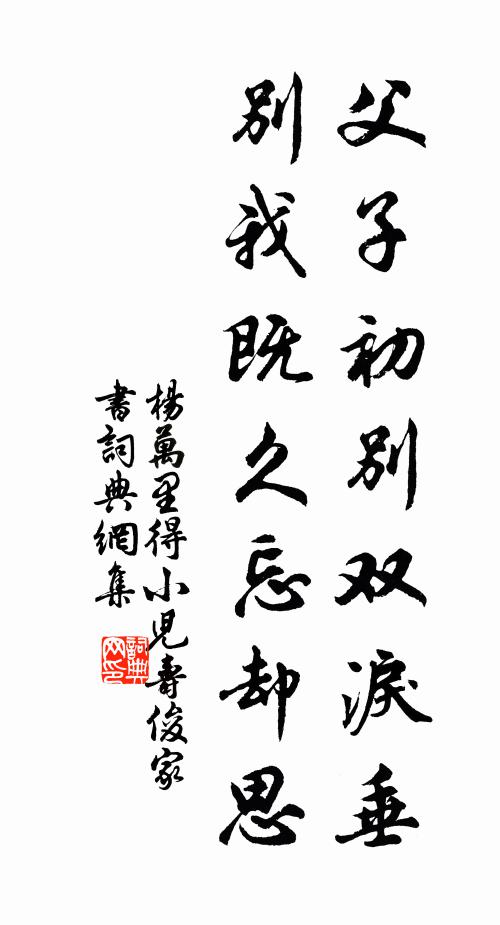 父子初別双淚垂
別我既久忘却思
楊萬里得小児壽俊家
書詞典網集
詞典
网印